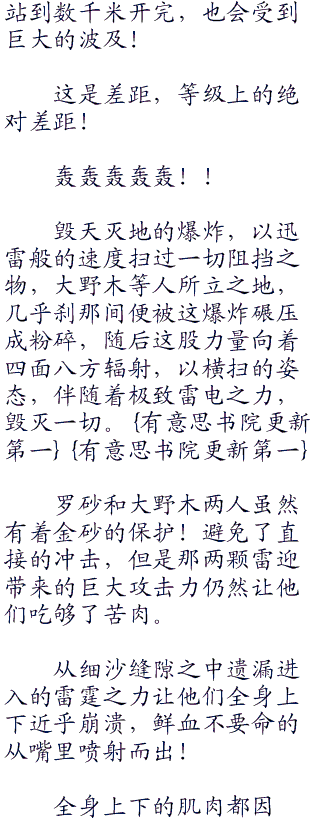 站到数千米开完，也会受到
巨大的波及！
这是差距，等级上的绝
对差距！
轰轰轰轰轰！！
毁天灭地的爆炸，以迅
雷般的速度扫过一切阻挡之
物，大野木等人所立之地，
几乎刹那间便被这爆炸碾压
成粉碎，随后这股力量向着
四面八方辐射，以横扫的姿
态，伴随着极致雷电之力，
毁灭一切。{有意思书院更新
第一} {有意思书院更新第一}
罗砂和大野木两人虽然
有着金砂的保护！避免了直
接的冲击，但是那两颗雷迎
带来的巨大攻击力仍然让他
们吃够了苦肉。
从细沙缝隙之中遗漏进
入的雷霆之力让他们全身上
下近乎崩溃，鲜血不要命的
从嘴里喷射而出！
全身上下的肌肉都因